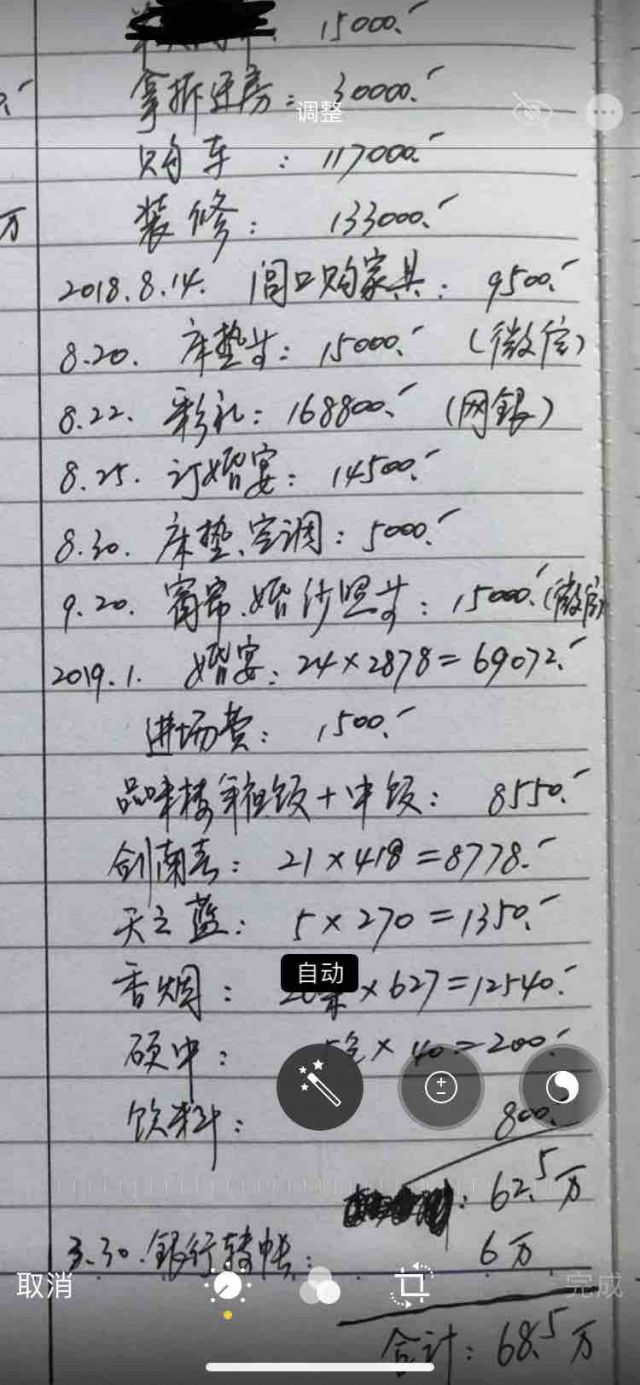 15000.-
拿拆迁房：30000.-
调整
购车：117000.-
万 装修：133000.-
2018.8.14. 阊口购家具：9500.-
8.20. 床垫等：15000.-（微信）
8.22. 彩礼：168800.-（网银）
8.25. 订婚宴：14500.-
8.30. 床垫、空调：5000.-
9.20. 窗帘.婚纱照等：15000.-（微信）
2019.1. 婚宴：24×2878=69072.-
进场费：1500.-
品味楼 饭+中饭：8550.-
剑南春：21×418=8778.-
天之蓝：5×270=1350.-
自动
香烟：20条×627=12540.-
硕中：5包×40=200.-
饮料：800.-
：62.5万
3.30.银行转帐：6万
取消 完成
合计：68.5万